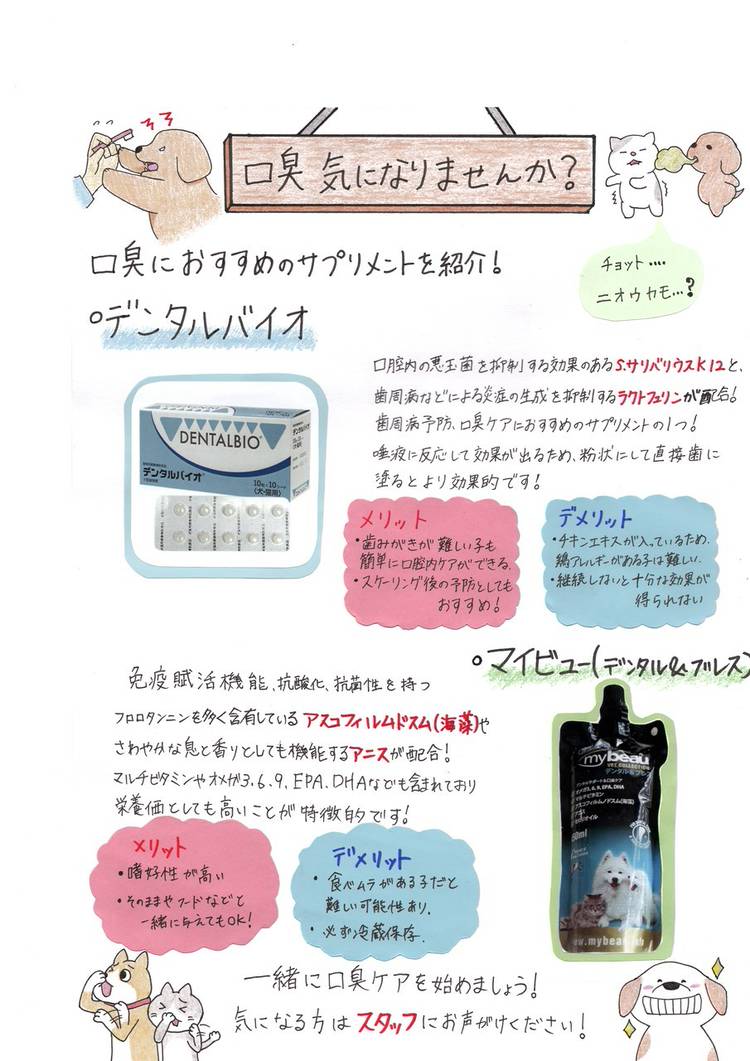 口臭 気になりませんか?
チョット....
ニオウカモ...?
口臭におすすめのサプリメントを紹介!
デンタルバイオ
口腔内の悪玉菌を抑制する効果のあるS.サリバリウスK12と、
歯周病などによる炎症の生成を抑制するラクトフェリンが配合!
歯周病予防、口臭ケアにおすすめのサプリメントの1つ!
唾液に反応して効果が出るため、粉状にして直接歯に
塗るとより効果的です!
DENTALBIO
デンタルバイオ
10粒×10シート
(犬・猫用)
メリット
・歯みがきが難しい子も
簡単に口腔内ケアができる.
・スケーリング後の予防としても
おすすめ!
デメリット
・チキンエキスが入っているため、
鶏アレルギーがある子は難しい.
・継続しないと十分な効果が
得られない
マイビュー(デンタル&ブレス)
免疫賦活機能、抗酸化、抗菌性を持つ
フロロタンニンを多く含有しているアスコフィルムドスム(海藻)や
さわやかな息と香りとしても機能するアニスが配合!
マルチビタミンやオメガ3.6.9、EPA、DHAなども含まれており
栄養価としても高いことが特徴的です!
mybeau
VET COLLECTION
デンタル&ブレス
デンタルサポート&口臭ケア
オメガ3, 6, 9, EPA, DHA
マルチビタミン
アスコフィルム/ドスム(海藻)
www.mybeau
メリット
・嗜好性が高い
・そのままやフードなどと
一緒に与えてもOK!
デメリット
・食べムラがある子だと
難しい可能性あり.
・必ず冷蔵保存.
一緒に口臭ケアを始めましょう!
気になる方はスタッフにお声がけください!